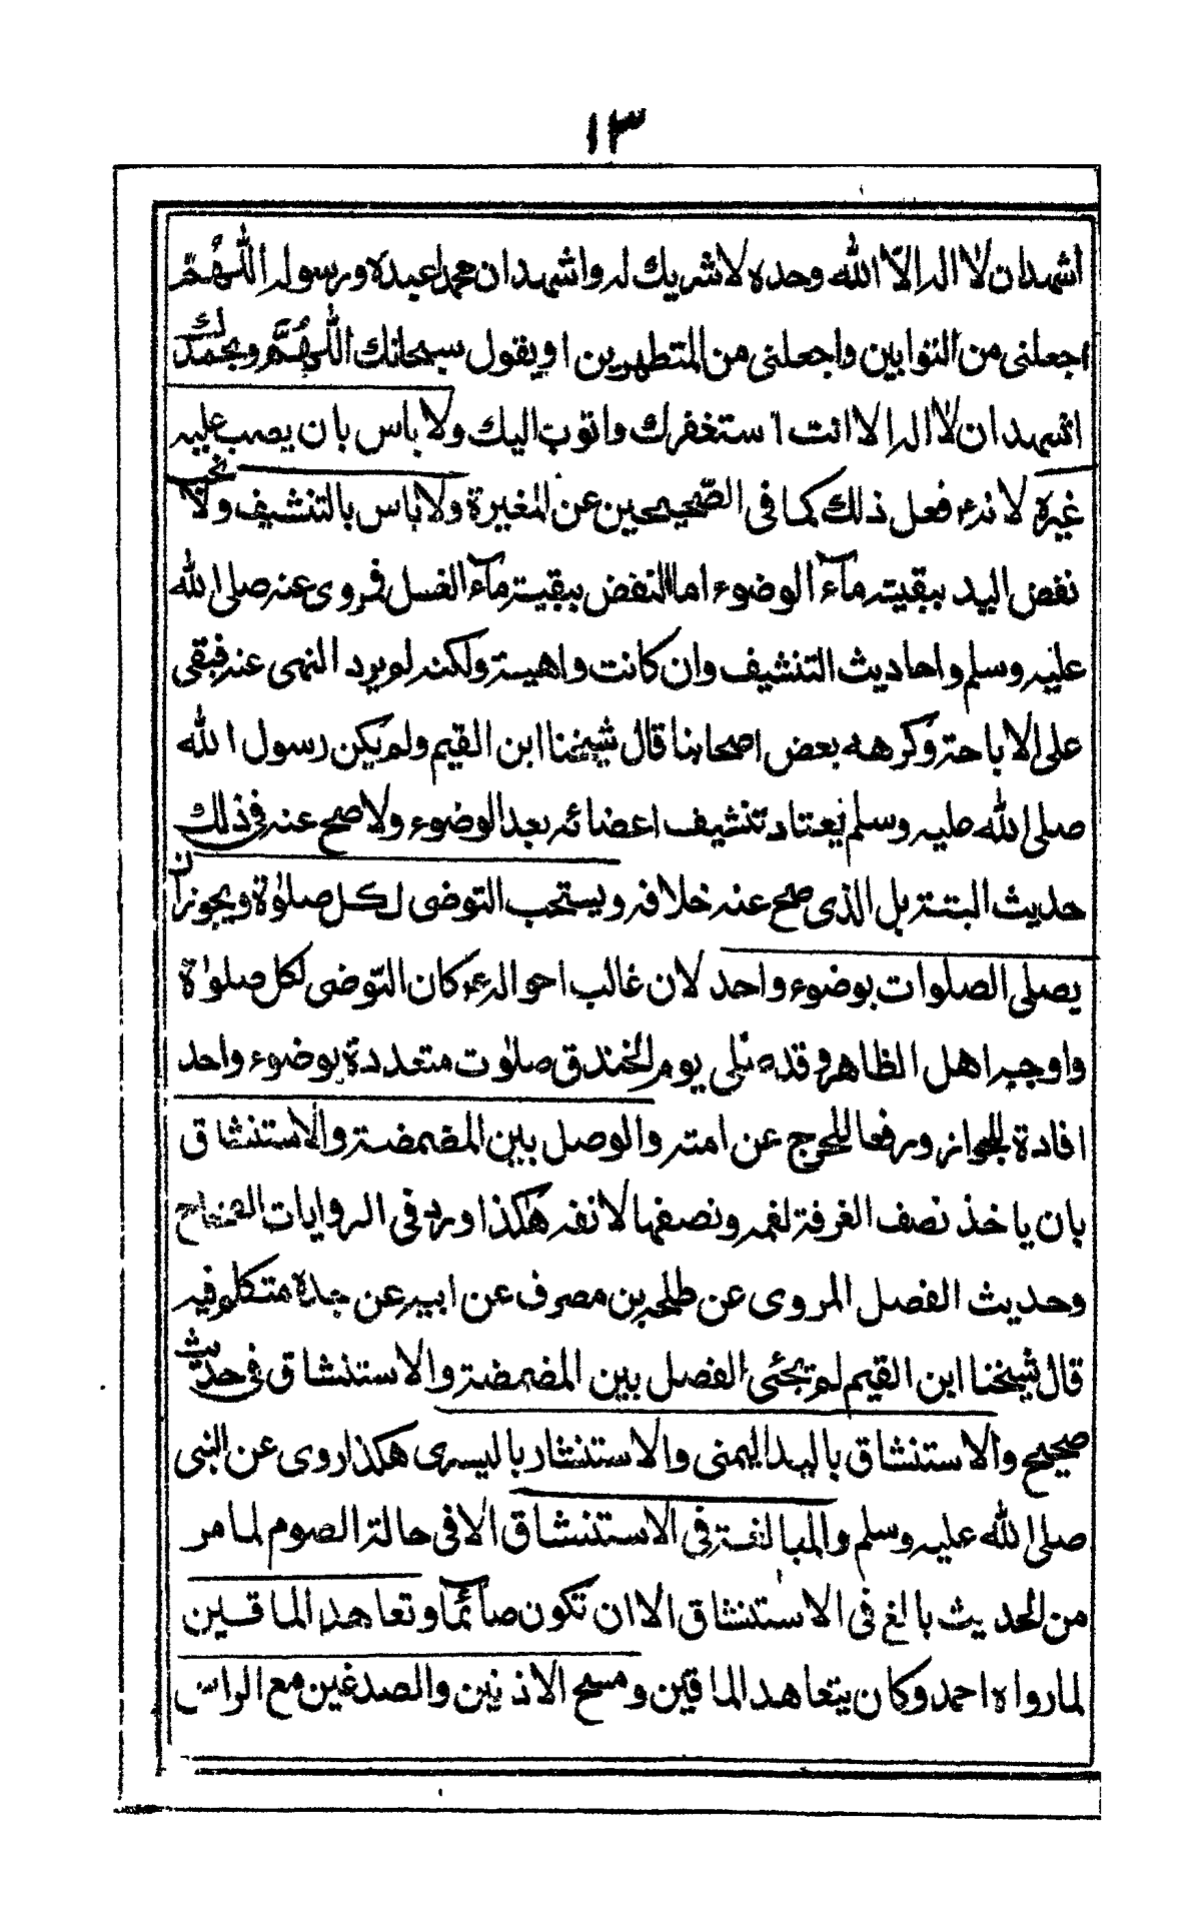 ١٣
اشهد ان لا اله الا الله وحده لا شريك له واشهد ان محمدا عبده ورسوله اللهم
اجعلنى من التوابين واجعلنى من المتطهرين او يقول سبحانك اللهم وبحمدك
اشهد ان لا اله الا انت استغفرك واتوب اليك ولا باس بان يصب عليه
غيره لانه فعل ذلك كما فى الصحيحين عن المغيرة ولا باس بالتنشيف ولا
نفض اليد ببقية مآء الوضوء اما النفض ببقية مآء الغسل فروى عنه صلى الله
عليه وسلم واحاديث التنشيف وان كانت واهية ولكنه لم يرد النهى عنه فبقى
على الاباحة وكرهه بعض اصحابنا قال شيخنا ابن القيم ولم يكن رسول الله
صلى الله عليه وسلم يعتاد تنشيف اعضائه بعد الوضوء ولا صح عنه فى ذلك
حديث البتة بل الذى صح عنه خلافه ويستحب التوضى لكل صلوٰة ويجوز ان
يصلى الصلوات بوضوء واحد لان غالب احواله كان التوضى لكل صلوٰة
واوجبه اهل الظاهر وقد صلى يوم الخندق صلوٰت متعددة بوضوء واحد
افادة للجواز ورفعا للحرج عن امته والوصل بين المضمضة والاستنشاق
بان ياخذ نصف الغرفة لفمه ونصفها لانفه هٰكذا ورد فى الروايات الصحاح
وحديث الفصل المروى عن طلحة بن مصرف عن ابيه عن جده متكلم فيه
قال شيخنا ابن القيم لم يجئى الفصل بين المضمضة والاستنشاق فى حديث
صحيح والاستنشاق باليد اليمنى والاستنثار باليسرى هكذا روى عن النبى
صلى الله عليه وسلم والمبالغة فى الاستنشاق الا فى حالة الصوم لما مر
من الحديث بالغ فى الاستنشاق الا ان تكون صآئما وتعاهد الماقين
لما رواه احمد وكان يتعاهد الماقين ومسح الاذنين والصدغين مع الراس